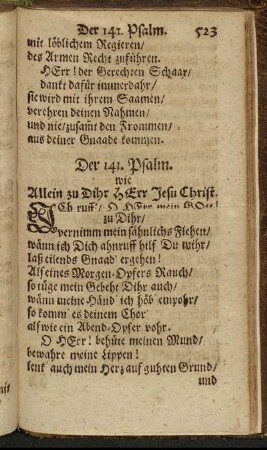 Der 141. Psalm. 523
mit löblichem Regieren/
des Armen Recht zuführen.
HErr! der Gerechten Schaar/
dankt dafür immerdahr/
sie wird mit ihrem Saamen/
verehren deinen Nahmen/
und nie/zusamt den Frommen/
aus deiner Gnaade kommen.
Der 141. Psalm.
wie
Allein zu Dihr HErr Jesu Christ.
ICh ruff'/ O HErr mein GOtt!
zu Dihr/
vernimm mein sähnlichs Flehen/
wänn ich Dich ahnruff hilf Du mihr/
laß eilends Gnaad' ergehen!
Als eines Morgen-Opfers Rauch/
so tüge mein Gebehte Dihr auch/
wänn meine Händ' ich höb' empohr/
so komm' es deinem Chor
als wie ein Abend-Opfer vohr.
O HErr! behüte meinen Mund/
bewahre meine Lippen!
lenk' auch mein Herz auf guhten Grund/
und